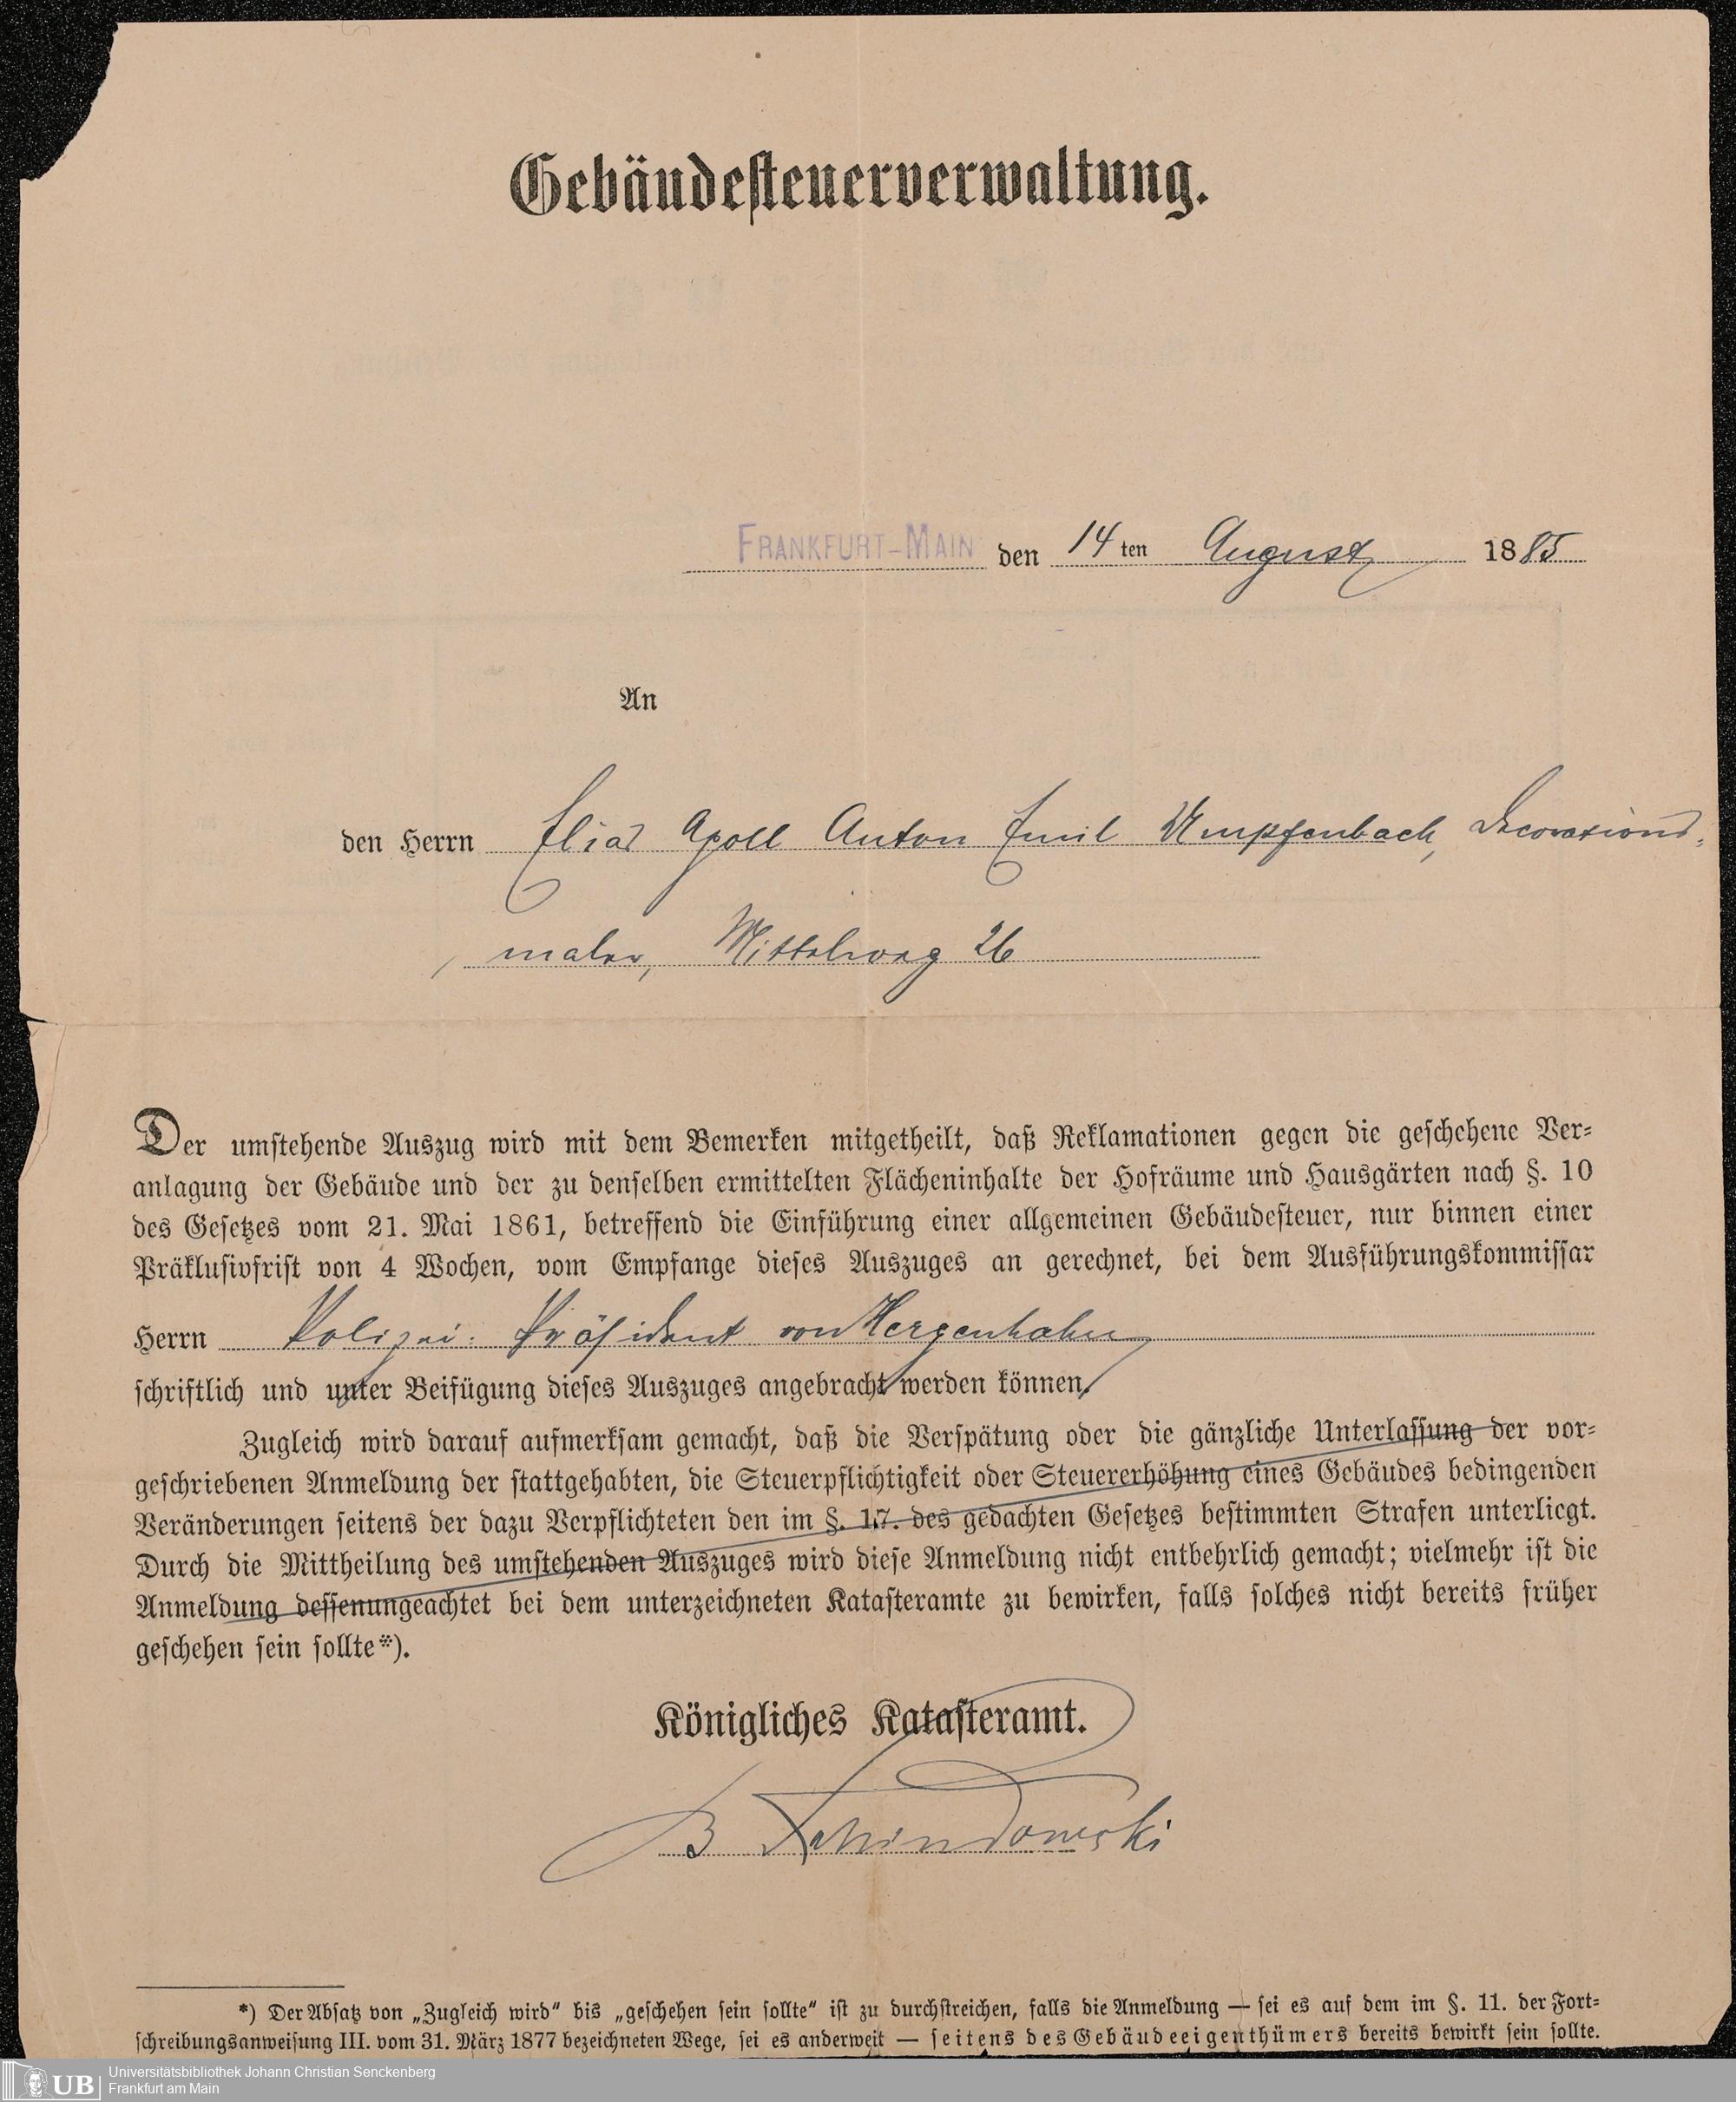 Gebäudesteuerverwaltung.
FRANKFURT-MAIN den 14 ten August 1885
An
den Herrn Elias Apoll Anton Emil Umpfenbach, Decorations-
maler, Mittelweg 26
Der umstehende Auszug wird mit dem Bemerken mitgetheilt, daß Reklamationen gegen die geschehene Ver-
anlagung der Gebäude und der zu denselben ermittelten Flächeninhalte der Hofräume und Hausgärten nach §. 10
des Gesetzes vom 21. Mai 1861, betreffend die Einführung einer allgemeinen Gebäudesteuer, nur binnen einer
Präklusivfrist von 4 Wochen, vom Empfange dieses Auszuges an gerechnet, bei dem Ausführungskommissar
Herrn Polizei-Präsident von Hergenhahn
schriftlich und unter Beifügung dieses Auszuges angebracht werden können.
Zugleich wird darauf aufmerksam gemacht, daß die Verspätung oder die gänzliche Unterlassung der vor-
geschriebenen Anmeldung der stattgehabten, die Steuerpflichtigkeit oder Steuererhöhung eines Gebäudes bedingenden
Veränderungen seitens der dazu Verpflichteten den im §. 17. des gedachten Gesetzes bestimmten Strafen unterliegt.
Durch die Mittheilung des umstehenden Auszuges wird diese Anmeldung nicht entbehrlich gemacht; vielmehr ist die
Anmeldung dessenungeachtet bei dem unterzeichneten Katasteramte zu bewirken, falls solches nicht bereits früher
geschehen sein sollte*).
Königliches Katasteramt.
B Schindowski
*) Der Absatz von „Zugleich wird“ bis „geschehen sein sollte“ ist zu durchstreichen, falls die Anmeldung — sei es auf dem im §. 11. der Fort-
schreibungsanweisung III. vom 31. März 1877 bezeichneten Wege, sei es anderweit — seitens des Gebäudeeigenthümers bereits bewirkt sein sollte.
UB Universitätsbibliothek Johann Christian Senckenberg
Frankfurt am Main